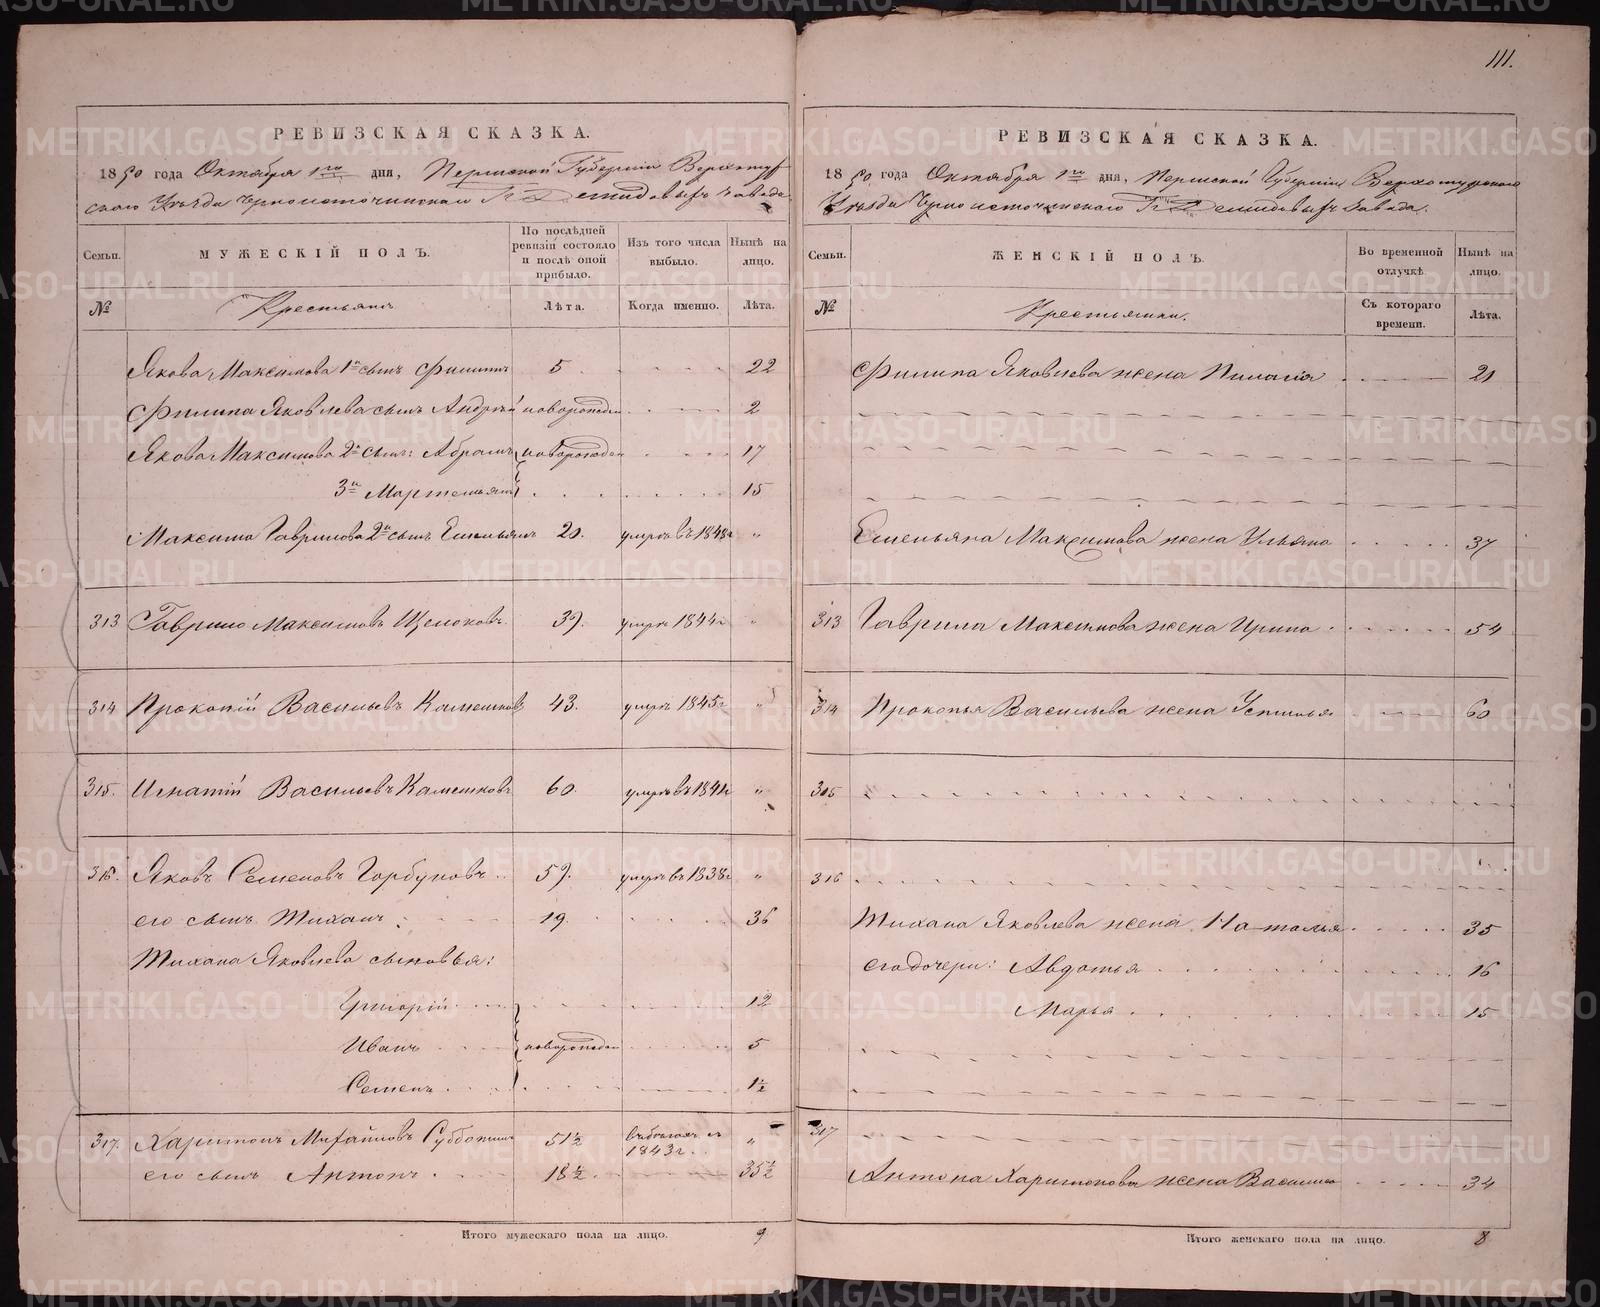 111.
РЕВИЗСКАЯ СКАЗКА.
1850 года Октября 1го дня, Пермской Губернии Верхотур
скаго Уѣзда Черноисточинскаго Гг. Демидовыхъ завода
Семьи.
МУЖЕСКІЙ ПОЛЪ.
По послѣдней ревизіи состояло и послѣ оной прибыло.
Изъ того числа выбыло.
Нынѣ на лицо.
№
Крестьяне
Лѣта.
Когда именно.
Лѣта.
Якова Максимова 1й сынъ Филиппъ 5 22
Филипа Яковлева сынъ Андрей новорожден 2
Якова Максимова 2й сынъ: Абрамъ новорожден 17
3й Мартемьянъ 15
Максима Гаврилова 2й сынъ Емельянъ 20. умеръ въ 1848г "
313 Гаврило Максимовъ Щелоковъ 39. умеръ 1844г "
314 Прокопій Васильевъ Камешковъ 43. умеръ 1845г "
315. Игнатій Васильевъ Камешковъ 60. умеръ въ 1841г "
316. Яковъ Семеновъ Горбуновъ 59. умеръ въ 1838г "
его сынъ Тихонъ 19. 36
Тихана Яковлева сыновья:
Григорій 12
Иванъ новорожден 5
Семенъ 1½
317. Харитонъ Михайловъ Субботинъ 51½ въ бегахъ съ 1843г. "
его сынъ Антонъ 18½. 35½
Итого мужескаго пола на лицо. 9
РЕВИЗСКАЯ СКАЗКА.
1850 года Октября 1го дня, Пермской Губерніи Верхотурскаго
Уѣзда Черноисточинскаго Гг. Демидовыхъ завода.
Семьи.
ЖЕНСКІЙ ПОЛЪ.
Во временной отлучкѣ.
Нынѣ на лицо.
№
Крестьянки.
Съ котораго времени.
Лѣта.
Филипа Яковлева жена Пилагія 21
Емельяна Максимова жена Ульяна 37
313 Гаврила Максимова жена Ирина 54
314 Прокопья Васильева жена Устинья 60
315
316
Тихана Яковлева жена Наталья 35
его дочери: Авдотья 16
Марья 15
317
Антона Харитонова жена Василиса 34
Итого женскаго пола на лицо. 8
METRIKI.GASO-URAL.RU